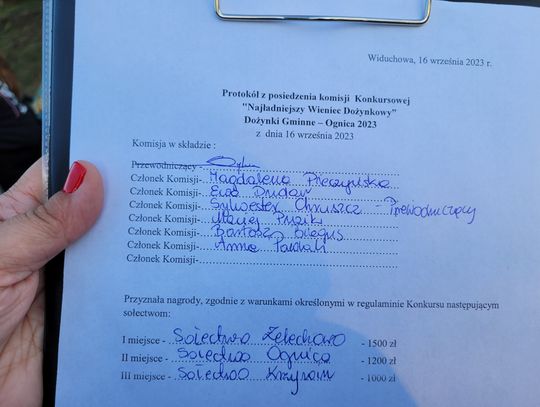 Widuchowa, 16 września 2023 r.
Protokół z posiedzenia komisji Konkursowej
"Najładniejszy Wieniec Dożynkowy"
Dożynki Gminne – Ognica 2023
z dnia 16 września 2023
Komisja w składzie :
Przewodniczący -
Członek Komisji- Magdalena Pieczyńska
Członek Komisji- Ewa Dudar
Członek Komisji- Sylwester Chruszcz - Przewodniczący
Członek Komisji- Maciej
Członek Komisji- Bartosz
Członek Komisji- Anna
Członek Komisji-
Przyznała nagrody, zgodnie z warunkami określonymi w regulaminie Konkursu następującym
sołectwom:
I miejsce - Sołectwo Żelechowo - 1500 zł
II miejsce - Sołectwo Ognica - 1200 zł
III miejsce - Sołectwo Krzywin - 1000 zł